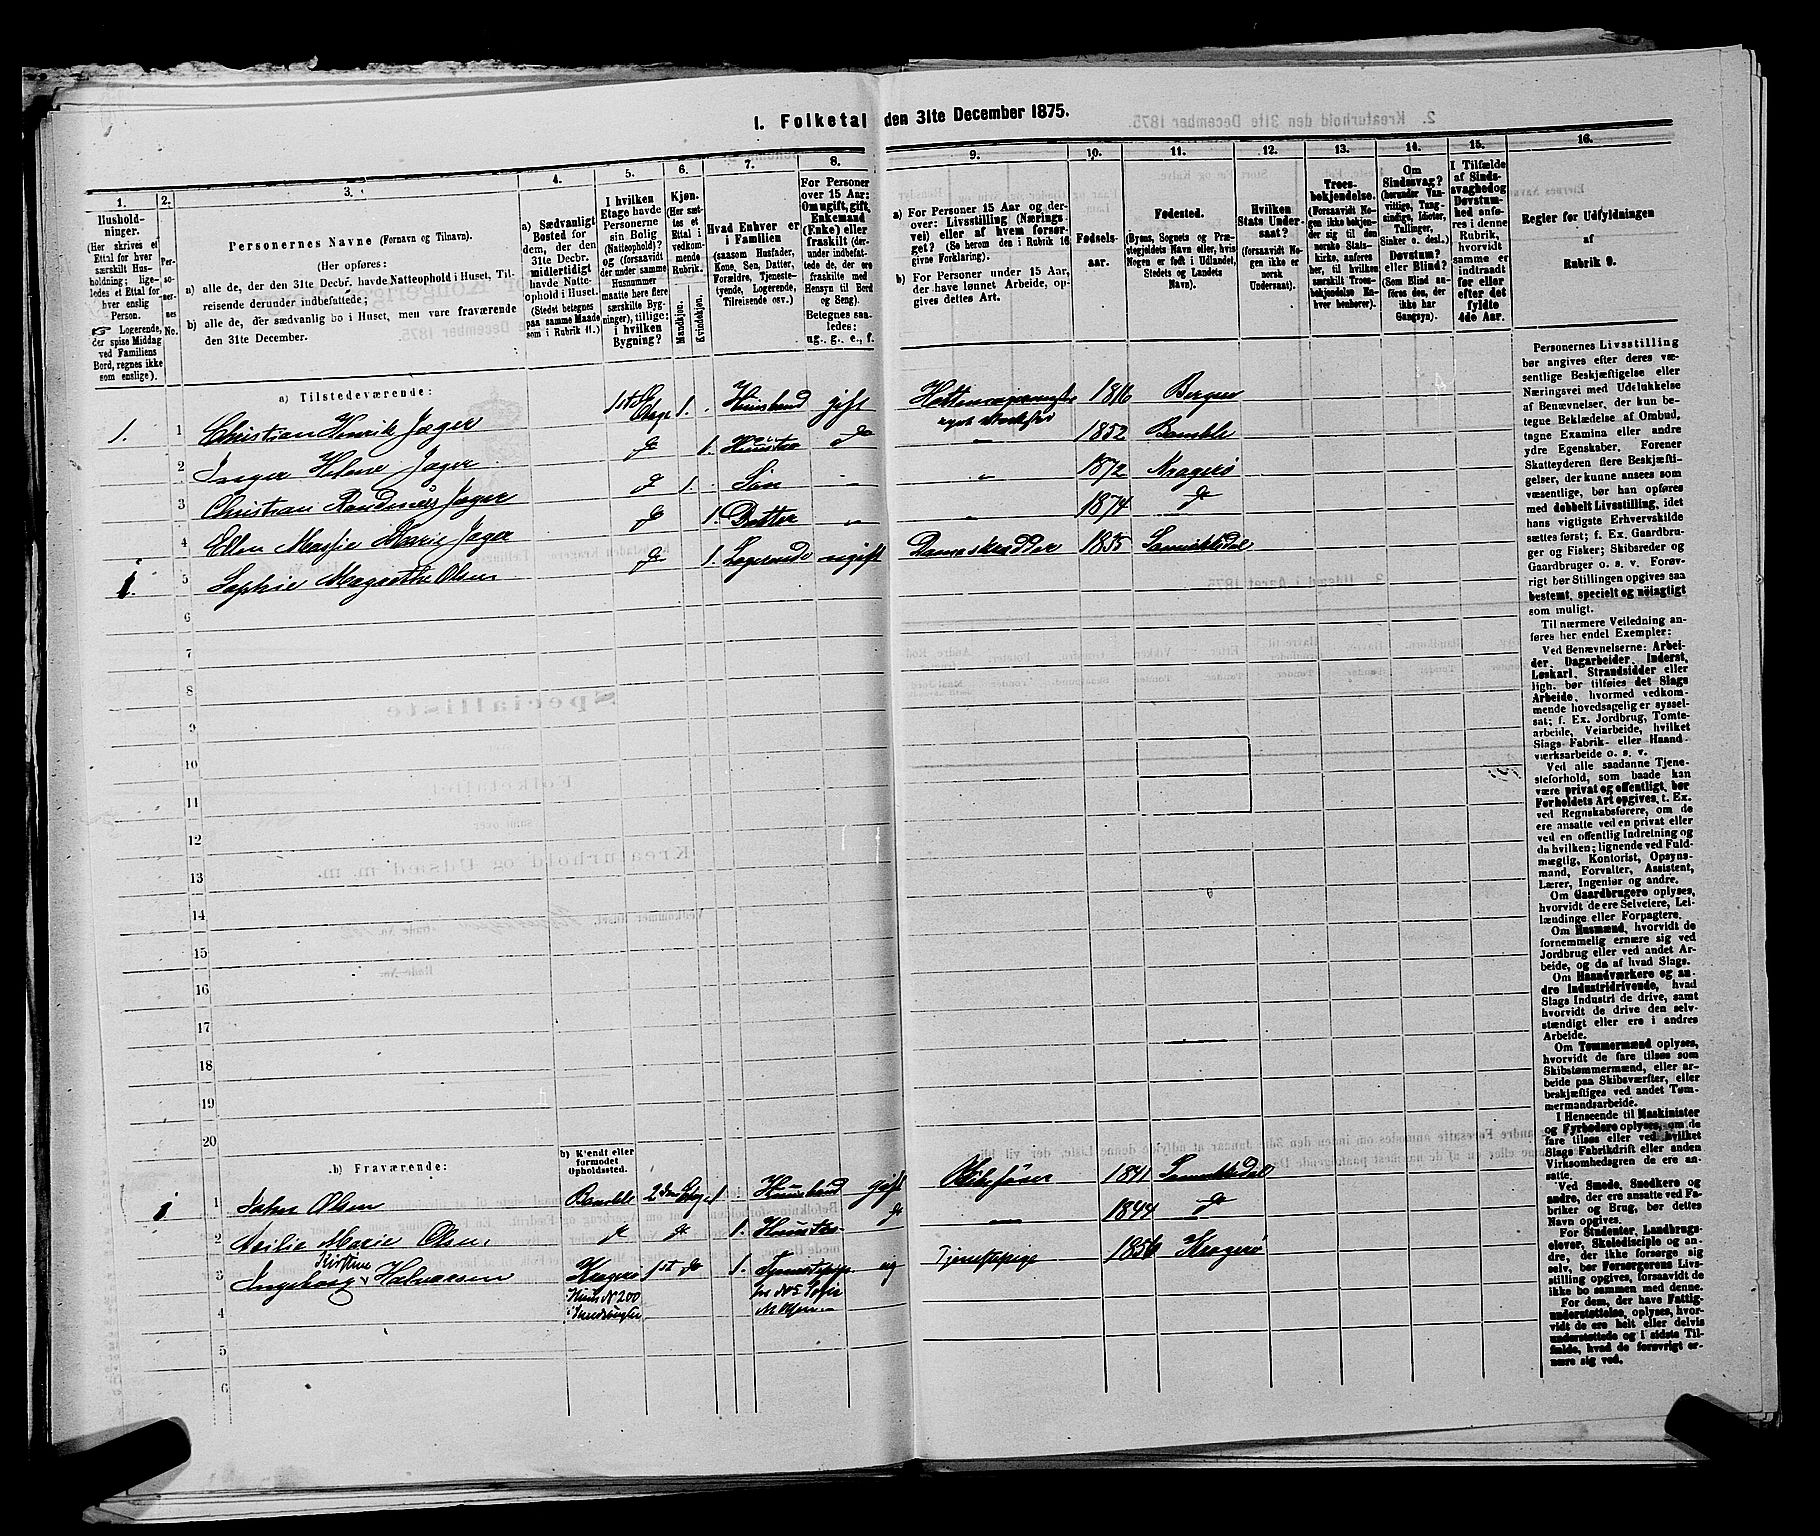 I. Folketal den 31te December 1875.
1.
Husholdninger.
(Her skrives et
Ettal for hver
særskilt Husholdning;
ligeledes et Ettal for
hver enslig
Person.
☞ Logerende,
der spise Middag
ved Familiens
Bord, regnes ikke
som enslige).
2.
Personernes No.
3.
Personernes Navne (Fornavn og Tilnavn).
(Her opføres:
a) alle de, der den 31te Decbr. havde Natteophold i Huset, Tilreisende derunder indbefattede;
b) alle de, der sædvanlig bo i Huset, men vare fraværende
den 31te December.
4.
a) Sædvanligt
Bosted for
dem, der den
31te Decbr.
midlertidigt
havde Natteophold i Huset.
(Stedet betegnes
paa samme Maade
som i Rubrik 11.)
5.
I hvilken
Etage havde
Personerne
sin Bolig
(Natteophold)?
og (forsaavidt
der under samme
Husnummer
maatte høre flere
særskilte Bygninger), tillige:
i hvilken
Bygning?
6.
Kjøn.
(Her sættes et
Ettal i
vedkommende
Rubrik.
Mandkjøn.
Kvindekjøn.
7.
Hvad Enhver er
i Familien
(saasom Husfader,
Kone, Søn, Datter,
Forældre, Tjenestetyende, Logerende,
Tilreisende osv.)
8.
For Personer
over 15 Aar:
Om ugift, gift,
Enkemand
(Enke) eller
fraskilt (derunder indbefattede de, der ere
fraskilte med
Hensyn til Bord
og Seng).
Betegnes saaledes:
ug., g., e., f.
9.
a) For Personer 15 Aar og derover: Livsstilling (Næringsvei) eller af hvem forsørget? (Se herom den i Rubrik 16
givne Forklaring).
b) For Personer under 15 Aar,
der have lønnet Arbeide, opgives dettes Art.
10.
Fødselsaar.
11.
Fødested.
(Byens, Sognets og Præstegjeldets Navn eller, hvis
Nogen er født i Udlandet,
Stedets og Landets
Navn).
12.
Hvilken
Stats Undersaat?
(forsaavidt Nogen ikke er
norsk
Undersaat).
13.
Troesbekjendelse.
(Forsaavidt Nogen ikke bekjender sig til den
norske Statskirke, anføres
her, til hvilken
særskilt Troesbekjendelse Enhver henhører).
14.
Om
Sindssvag?
(herunder Vanvittige, Tungsindige, Idioter,
Tullinger,
Sinker o. desl.)
Døvstum?
eller Blind?
(Som Blind anføres den, der
ikke har
Gangsyn).
15.
I Tilfælde
af Sindssvaghed og
Døvstumhed anføres i denne
Rubrik,
hvorvidt
samme er
indtraadt
før eller
efter det
fyldte
4de Aar.
16.
Regler for Udfyldningen
af
Rubrik 9.
a) Tilstedeværende:
1. 1 Christian Henrik Jæger 1ste Etage 1. Huusband gift 1816 Bergen
2 Inger Helene Jæger do 1. Huustro do " 1852 Bamble
3 Christian Jæger do 1. Søn " " 1872 Kragerø
4 Ellen Marie Jæger do 1. Datter " " 1874 do
1. 5 Sophie Olsen do 1. Logerende ugift 1835 Sannikedal
6
7
8
9
10
11
12
13
14
15
16
17
18
19
20
b) Fraværende:
b) Kjendt eller
formodet
Opholdssted.
1 1 Olsen Bamble 2den Etage 1 Huusband gift 1841 Sannikedal
2 Marie Olsen do do 1. Huustro do " 1844 do
Kirstine
3 Ingeborg Halvorsen Kragerø 1st do 1. Tjenestepige ug Tjenestepige 1856 Kragerø
4 Huus N 200
5
6
Personernes Livsstilling
bør angives efter deres væsentlige Beskjæftigelse eller
Næringsvei med Udelukkelse
af Benævnelser, der kun betegne Beklædelse af Ombud,
tagne Examina eller andre
ydre Egenskaber. Forener
Skatteyderen flere Beskjæftigelser, der kunne ansees som
væsentlige, bør han opføres
med dobbelt Livsstilling, idet
hans vigtigste Erhvervskilde
sættes først; f. Ex. Gaardbruger og Fisker; Skibsreder og
Gaardbruger o. s. v. Forøvrigt bør Stillingen opgives saa
bestemt, specielt og nøiagtigt
som muligt.
Til nærmere Veiledning anføres her endel Exempler:
Ved Benævnelserne: Arbeider, Dagarbeider, Inderst,
Løskarl, Strandsidder eller
ligh. bør tilføies det Slags
Arbeide, hvormed vedkommende hovedsagelig er sysselsat; f. Ex. Jordbrug, Tomtearbeide, Veiarbeide, hvilket
Slags Fabrik- eller Haandværksarbeide o. s. v.
Ved alle saadanne Tjenesteforhold, som baade kan
være privat og offentligt, bør
Forholdets Art opgives, t. Ex.
ved Regnskabsførere, om de
ere ansatte ved en privat eller
ved en offentlig Indretning og
da hvilken; lignende ved Fuldmægtig, Kontorist, Opsynsmand, Forvalter, Assistent,
Lærer, Ingeniør og andre.
Om Gaardbrugere oplyses,
hvorvidt de ere Selveiere, Leilændinge eller Forpagtere.
Om Husmænd, hvorvidt de
fornemmelig ernære sig ved
Jordbrug eller ved andet Arbeide, og da af hvad Slags.
Om Haandværkere og andre Industridrivende, hvad
Slags Industri de drive, samt
hvorvidt de drive den selvstændigt eller ere i andres
Arbeide.
Om Tømmermænd oplyses,
hvorvidt de fare tilsøs som
Skibstømmermænd, eller arbeide paa Skibsværfter, eller
beskjæftiges ved andet Tømmermandsarbeide.
I Henseende til Maskinister
og Fyrbødere oplyses, om de
fare tilsøs eller ved hvilket
Slags Fabrikdrift eller anden
Virksomhedsgren de ere ansatte.
Ved Smede, Snedkere og
andre, der ere ansatte ved Fabriker og Brug, bør dettes
Navn opgives.
For Studenter, Landbrugselever, Skoledisciple og andre, der ikke forsørge sig
selv, bør Forsørgerens Livsstilling opgives, forsaavidt de
ikke bo sammen med denne.
For dem, der have Fattigunderstøttelse, oplyses, hvorvidt de ere helt eller delvis
understøttede og i sidste Tilfælde, hvad de forøvrigt ernære sig ved.